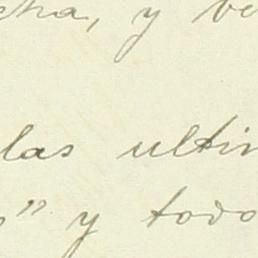 cha, y ve
las ultim
s" y todo